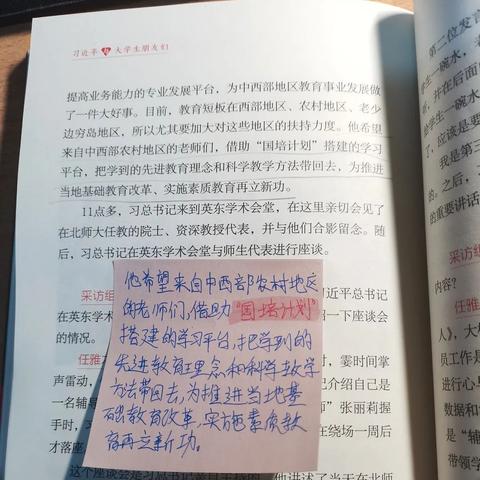 习近平与大学生朋友们
提高业务能力的专业发展平台，为中西部地区教育事业发展做
了一件大好事。目前，教育短板在西部地区、农村地区、老少
边穷岛地区，所以尤其要加大对这些地区的扶持力度。他希望
来自中西部农村地区的老师们，借助“国培计划”搭建的学习
平台，把学到的先进教育理念和科学教学方法带回去，为推进
当地基础教育改革、实施素质教育再立新功。
11点多，习总书记来到英东学术会堂，在这里亲切会见了
在北师大任教的院士、资深教授代表，并与他们合影留念。随
后，习总书记在英东学术会堂与师生代表进行座谈。
采访组
习近平总书记
在英东
绍一下座谈会
的情况。
任雅
霎时间掌
声雷动，
记介绍自己
是一名辅
师”张丽莉握
手时，习
在绕场一周后
才落座。
他希望来自中西部农村地区
的老师们，借助“国培计划”
搭建的学习平台，把学到的
先进教育理念和科学教学
方法带回去，为推进当地基
础教育改革，实施素质教
育再立新功。
第二位发言
学生一碗水，老
，并在后面
给学生一碗水
了，应该是要
我是第三
的。之后，
的重要讲话
采访组
内容？
任雅
人》，大
员工作是
进行心与
数据和
是“辅
带领学